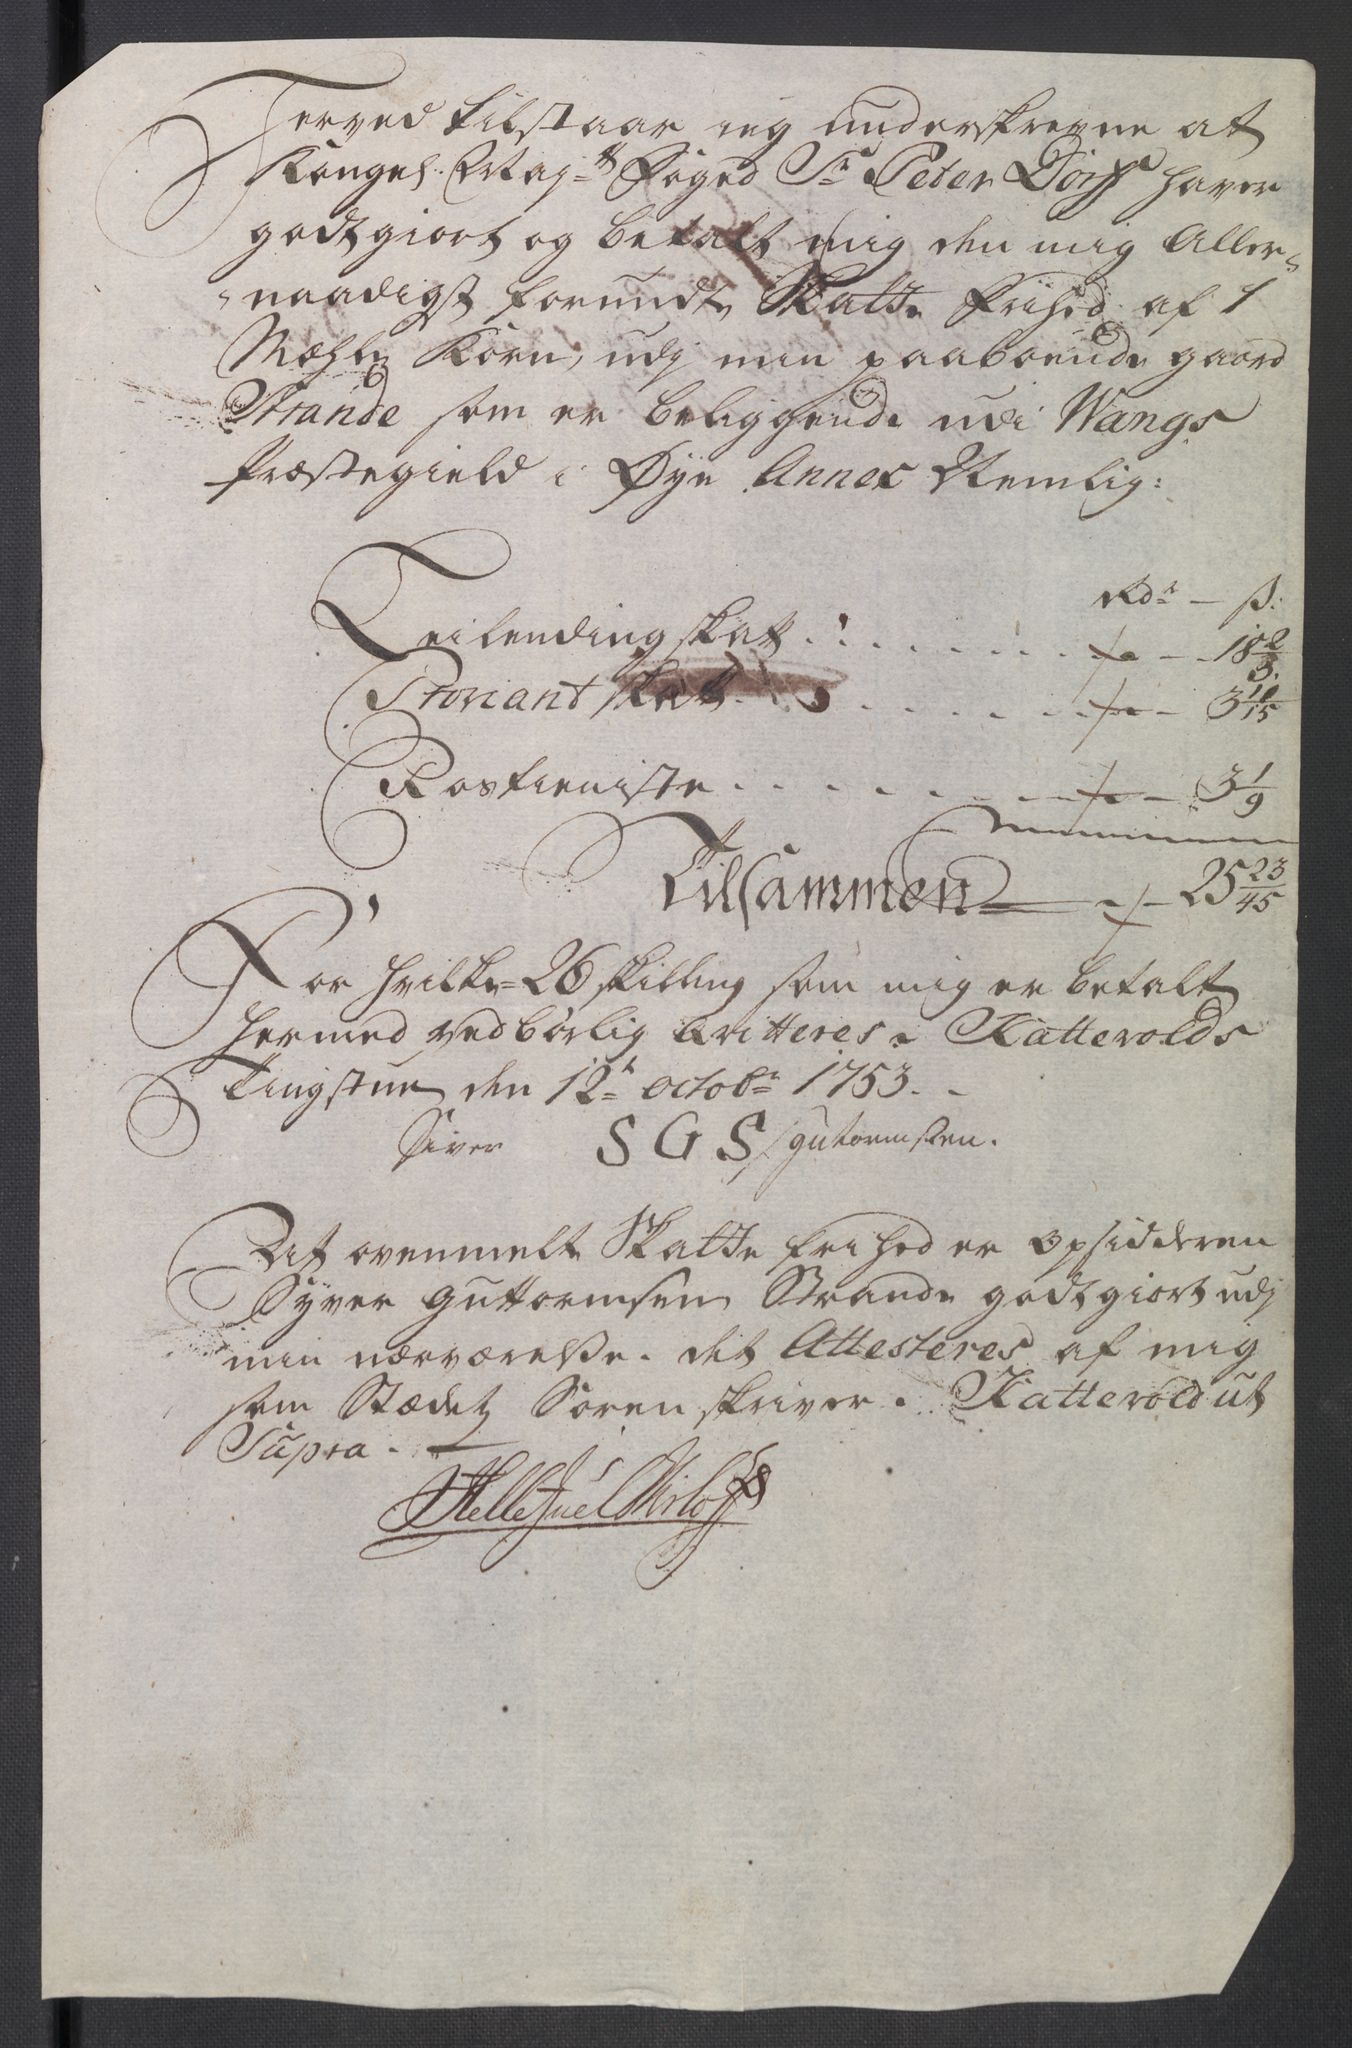 Herved tilstaar ieg underskrevne at
Kongel. Mayts Foged Sr Peter Dorff haver
godtgiort og betalt mig den mig Aller-
-naadigst forundte Skatte frihed af 1
Mæhle Korn, udj min paaboende gaard
Strande som er beliggende udi Wangs
Præstegield i Øye Annex Nemlig:
Rdr — ß:
Leilendingskatt . . . . . . . — 18 2/3
Proviant skatt . . . . . . — 3 11/15
Rostieniste . . . . . . . — 3 1/9
Tilsammen — 25 23/45
For hvilke 26 skilling som mig er betalt
hermed vedbørlig kvitteres. Katterolds
Tingstue den 12te octobr 1753.
Siver S G S gutormssen.
At ovenmelte Skatte frihed er Opsidderen
Syver Guttormsen Strande godtgiort udj
min nærværelse. det Attesteres af mig
som Stædets Sorenskriver. Katterold ut
Supra.
Helle Juel